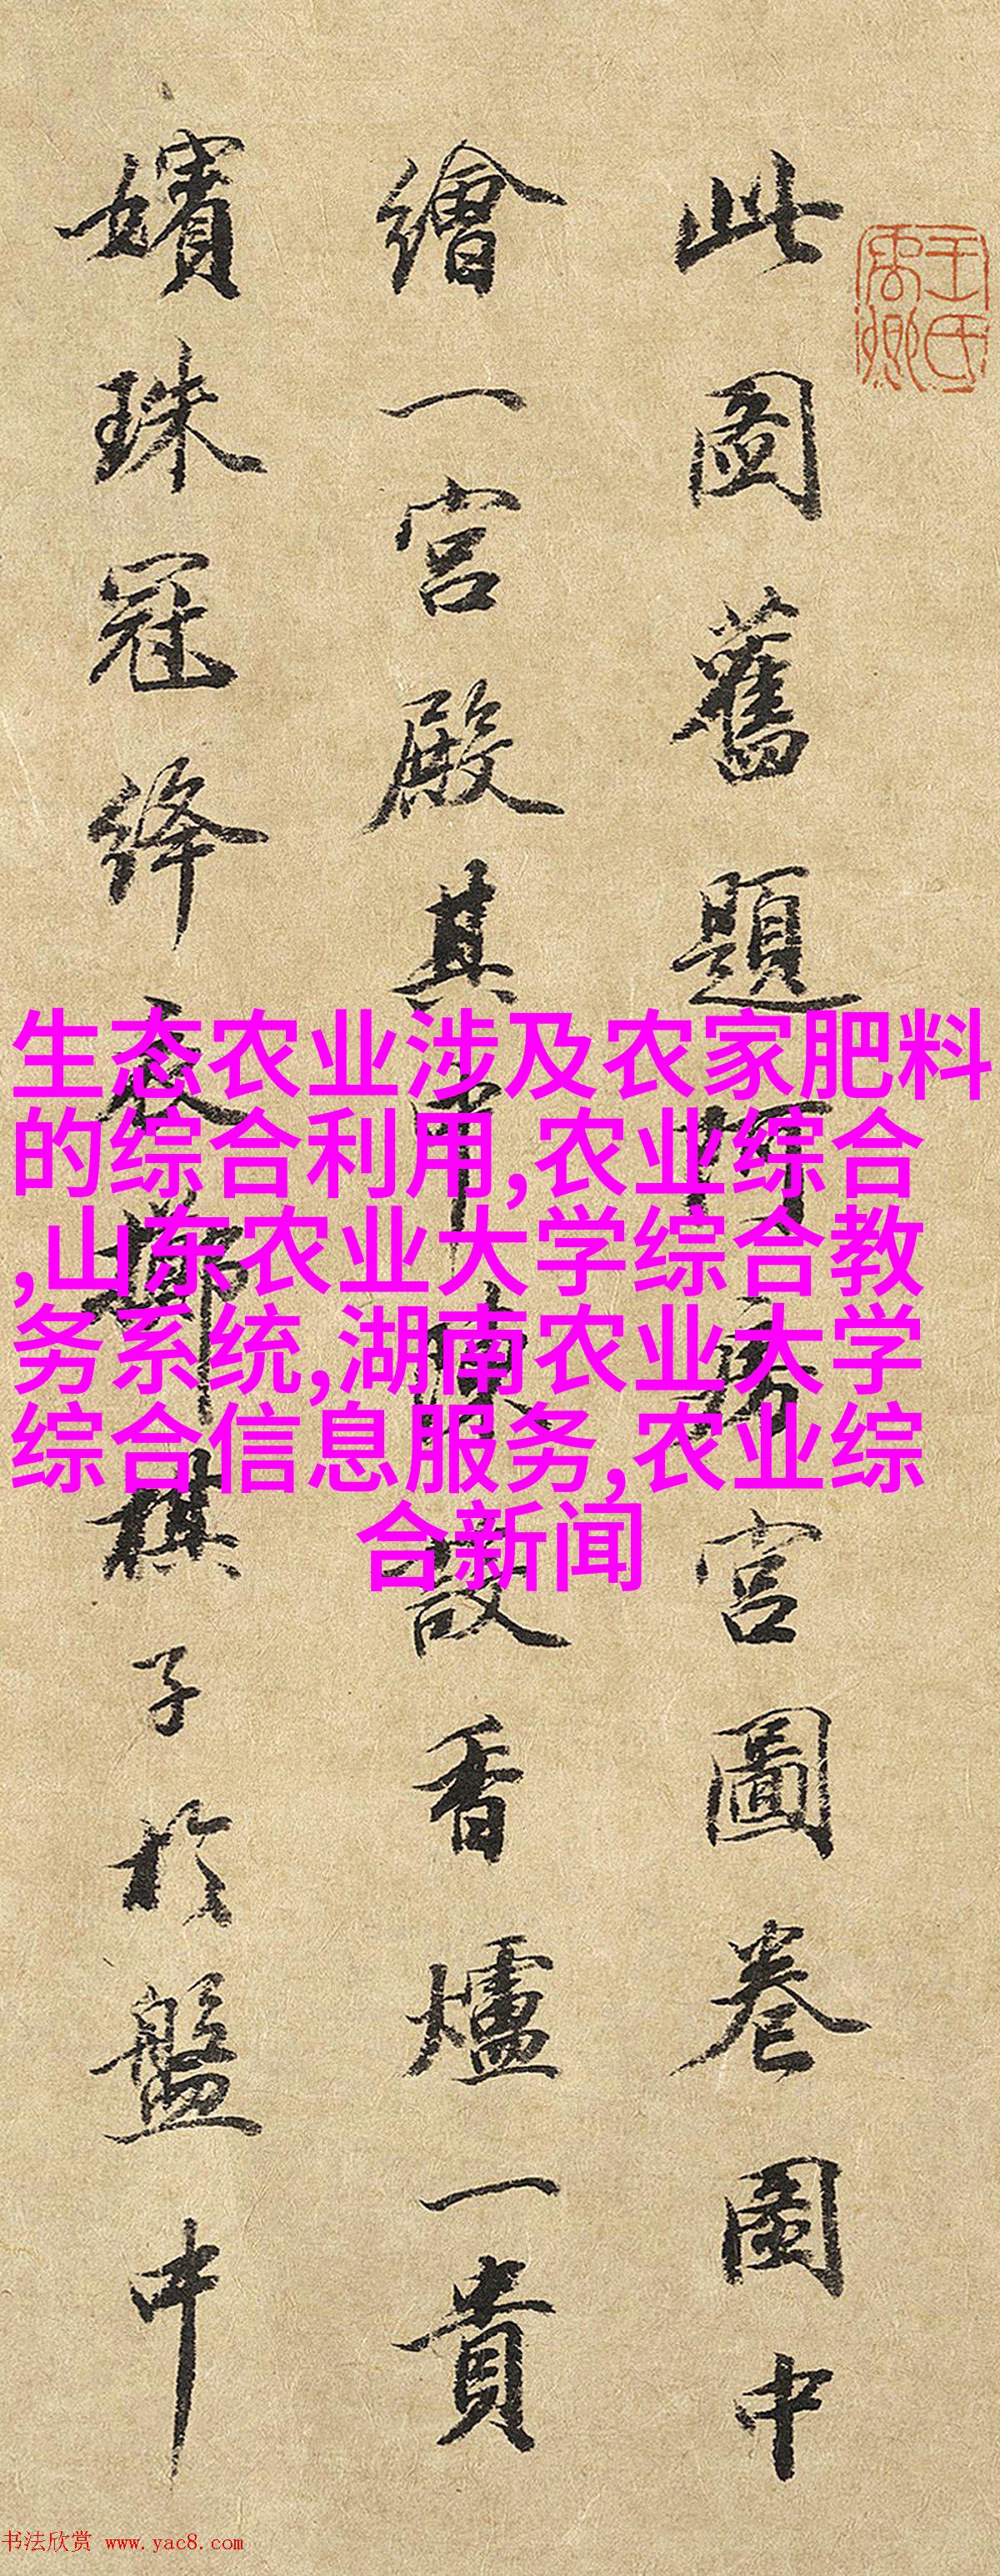 此圖舊題阿房宮圖卷圖中
繪一宮殿其中陳設香爐一貴
嬪珠冠絳衣擲棋子於盤中
王氏禹卿
生态农业涉及农家肥料
的综合利用,农业综合
,山东农业大学综合教
务系统,湖南农业大学
综合信息服务,农业综
合新闻
书法欣赏 www.yac8.com